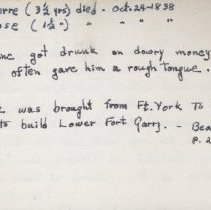 erre (3½ yrs) died - Oct. 24-1838
ose (1½ ") " " "
nc got drunk on dowry money
often gave him a rough tongue.
was brought from Ft. York to
to build Lower Fort Garry. - Bea
P. 2